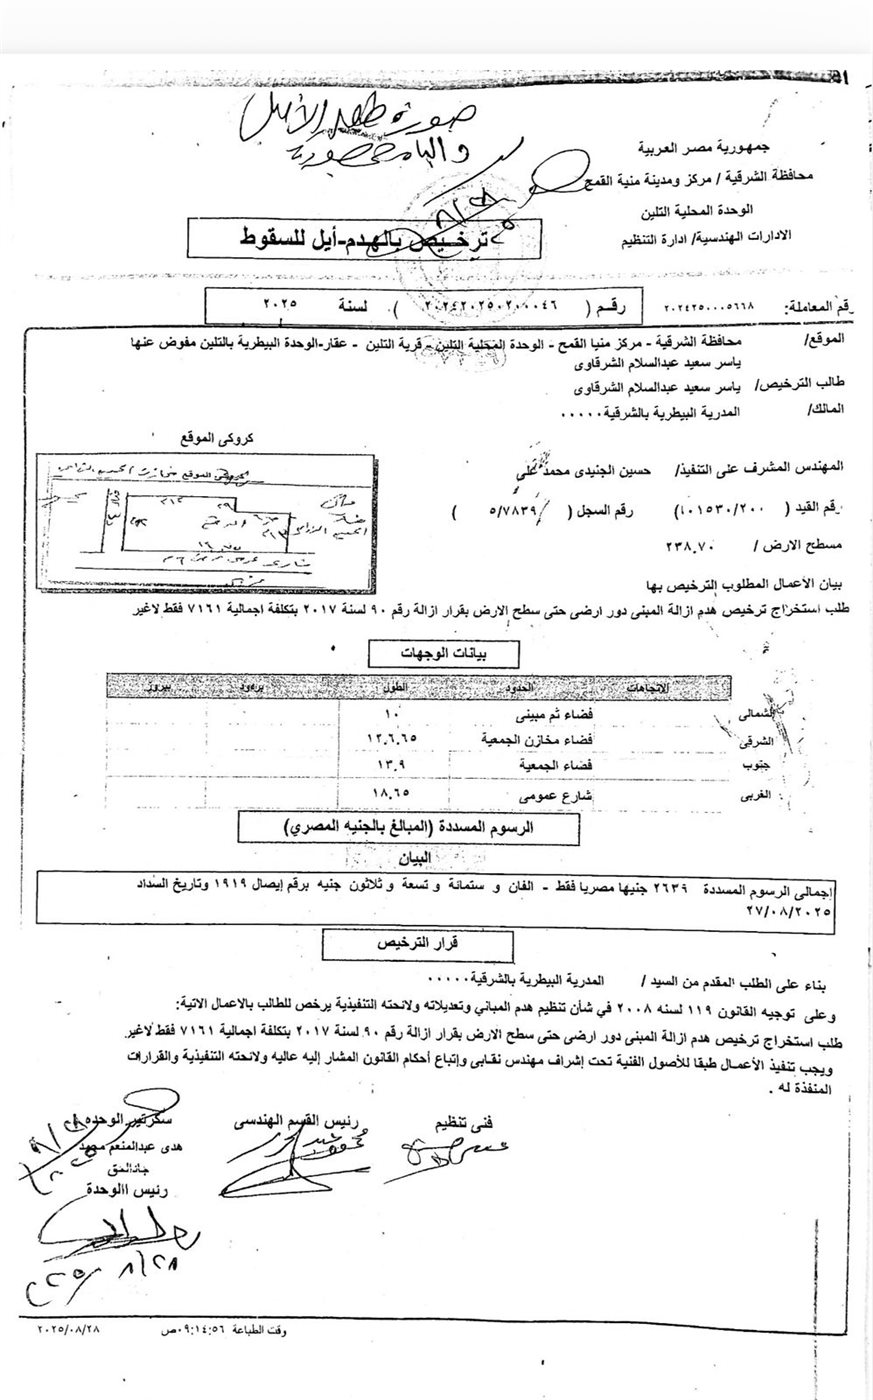 صورة طبق الأصل
جمهورية مصر العربية
محافظة الشرقية / مركز ومدينة منية القمح
الوحدة المحلية التلين
الادارات الهندسية/ ادارة التنظيم
ترخيص بالهدم-أيل للسقوط
رقم المعاملة: ٢٠٢٤٢٥٠٠٠٥٦٦٨
رقم ( ٢٠٢٤٢٠٢٥٠٢٠٠٠٤٦ ) لسنة ٢٠٢٥
الموقع/ محافظة الشرقية - مركز منيا القمح - الوحدة المحلية التلين - قرية التلين - عقار-الوحدة البيطرية بالتلين مفوض عنها
ياسر سعيد عبدالسلام الشرقاوى
طالب الترخيص/ ياسر سعيد عبدالسلام الشرقاوى
المالك/ المدرية البيطرية بالشرقية٠٠٠٠٠
كروكى الموقع
المهندس المشرف على التنفيذ/ حسين الجنيدى محمد
رقم القيد (١٠١٥٣٠/٢٠٠) رقم السجل ( ٥/٧٨٣٩ )
مسطح الارض / ٢٣٨.٧٠
بيان الأعمال المطلوب الترخيص بها
طلب استخراج ترخيص هدم ازالة المبنى دور ارضى حتى سطح الارض بقرار ازالة رقم ٩٠ لسنة ٢٠١٧ بتكلفة اجمالية ٧١٦١ فقط لاغير
بيانات الوجهات
الاتجاهات الحدود الطول بردود ببروز
الشمالى فضاء ثم مبينى ١٠
الشرقى فضاء مخازن الجمعية ١٢.٦.٦٥
جنوب فضاء الجمعية ١٣.٩
الغربى شارع عمومى ١٨.٦٥
الرسوم المسددة (المبالغ بالجنيه المصري)
البيان
إجمالى الرسوم المسددة ٢٦٣٩ جنيها مصريا فقط - الفان و ستمائة و تسعة و ثلاثون جنيه برقم إيصال ١٩١٩ وتاريخ السداد
٢٧/٠٨/٢٠٢٥
قرار الترخيص
بناء على الطلب المقدم من السيد / المدرية البيطرية بالشرقية٠٠٠٠٠
وعلى توجيه القانون ١١٩ لسنه ٢٠٠٨ في شأن تنظيم هدم المباني وتعديلاته ولائحته التنفيذية يرخص للطالب بالاعمال الاتية:
طلب استخراج ترخيص هدم ازالة المبنى دور ارضى حتى سطح الارض بقرار ازالة رقم ٩٠ لسنة ٢٠١٧ بتكلفة اجمالية ٧١٦١ فقط لاغير
ويجب تنفيذ الأعمال طبقا للأصول الفنية تحت إشراف مهندس نقابى وإتباع أحكام القانون المشار إليه عاليه ولائحته التنفيذية والقرارات
المنفذة له .
فنى تنظيم رئيس القسم الهندسى سكرتير الوحده
هدى عبدالمنعم محمد
جادالحق
رئيس االوحدة
٢٠٢٥/٨/٢٨
وقت الطباعة ٠٩:١٤:٥٦ص ٢٠٢٥/٠٨/٢٨